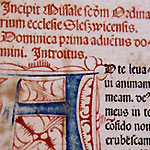 Incipit Missale scdm Ordina
rium ecclesie Sleszvicensis.
Dominica prima aduētus do
mini. Introitus.
D te leua
vi animam
meam. de
meus in te
cōfido non
crubēscam